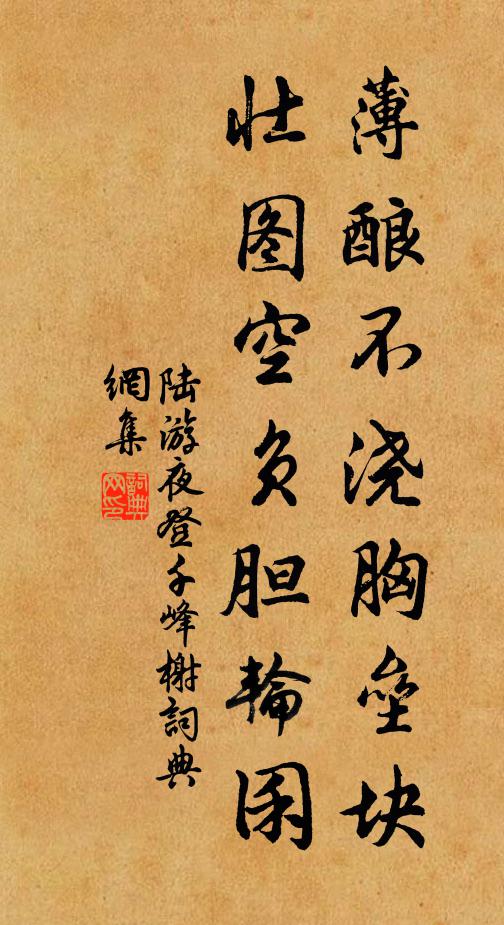 薄酿不浇胸垒块
壮图空负胆轮囷
陆游夜登千峰榭詞典
網集
詞典
网印